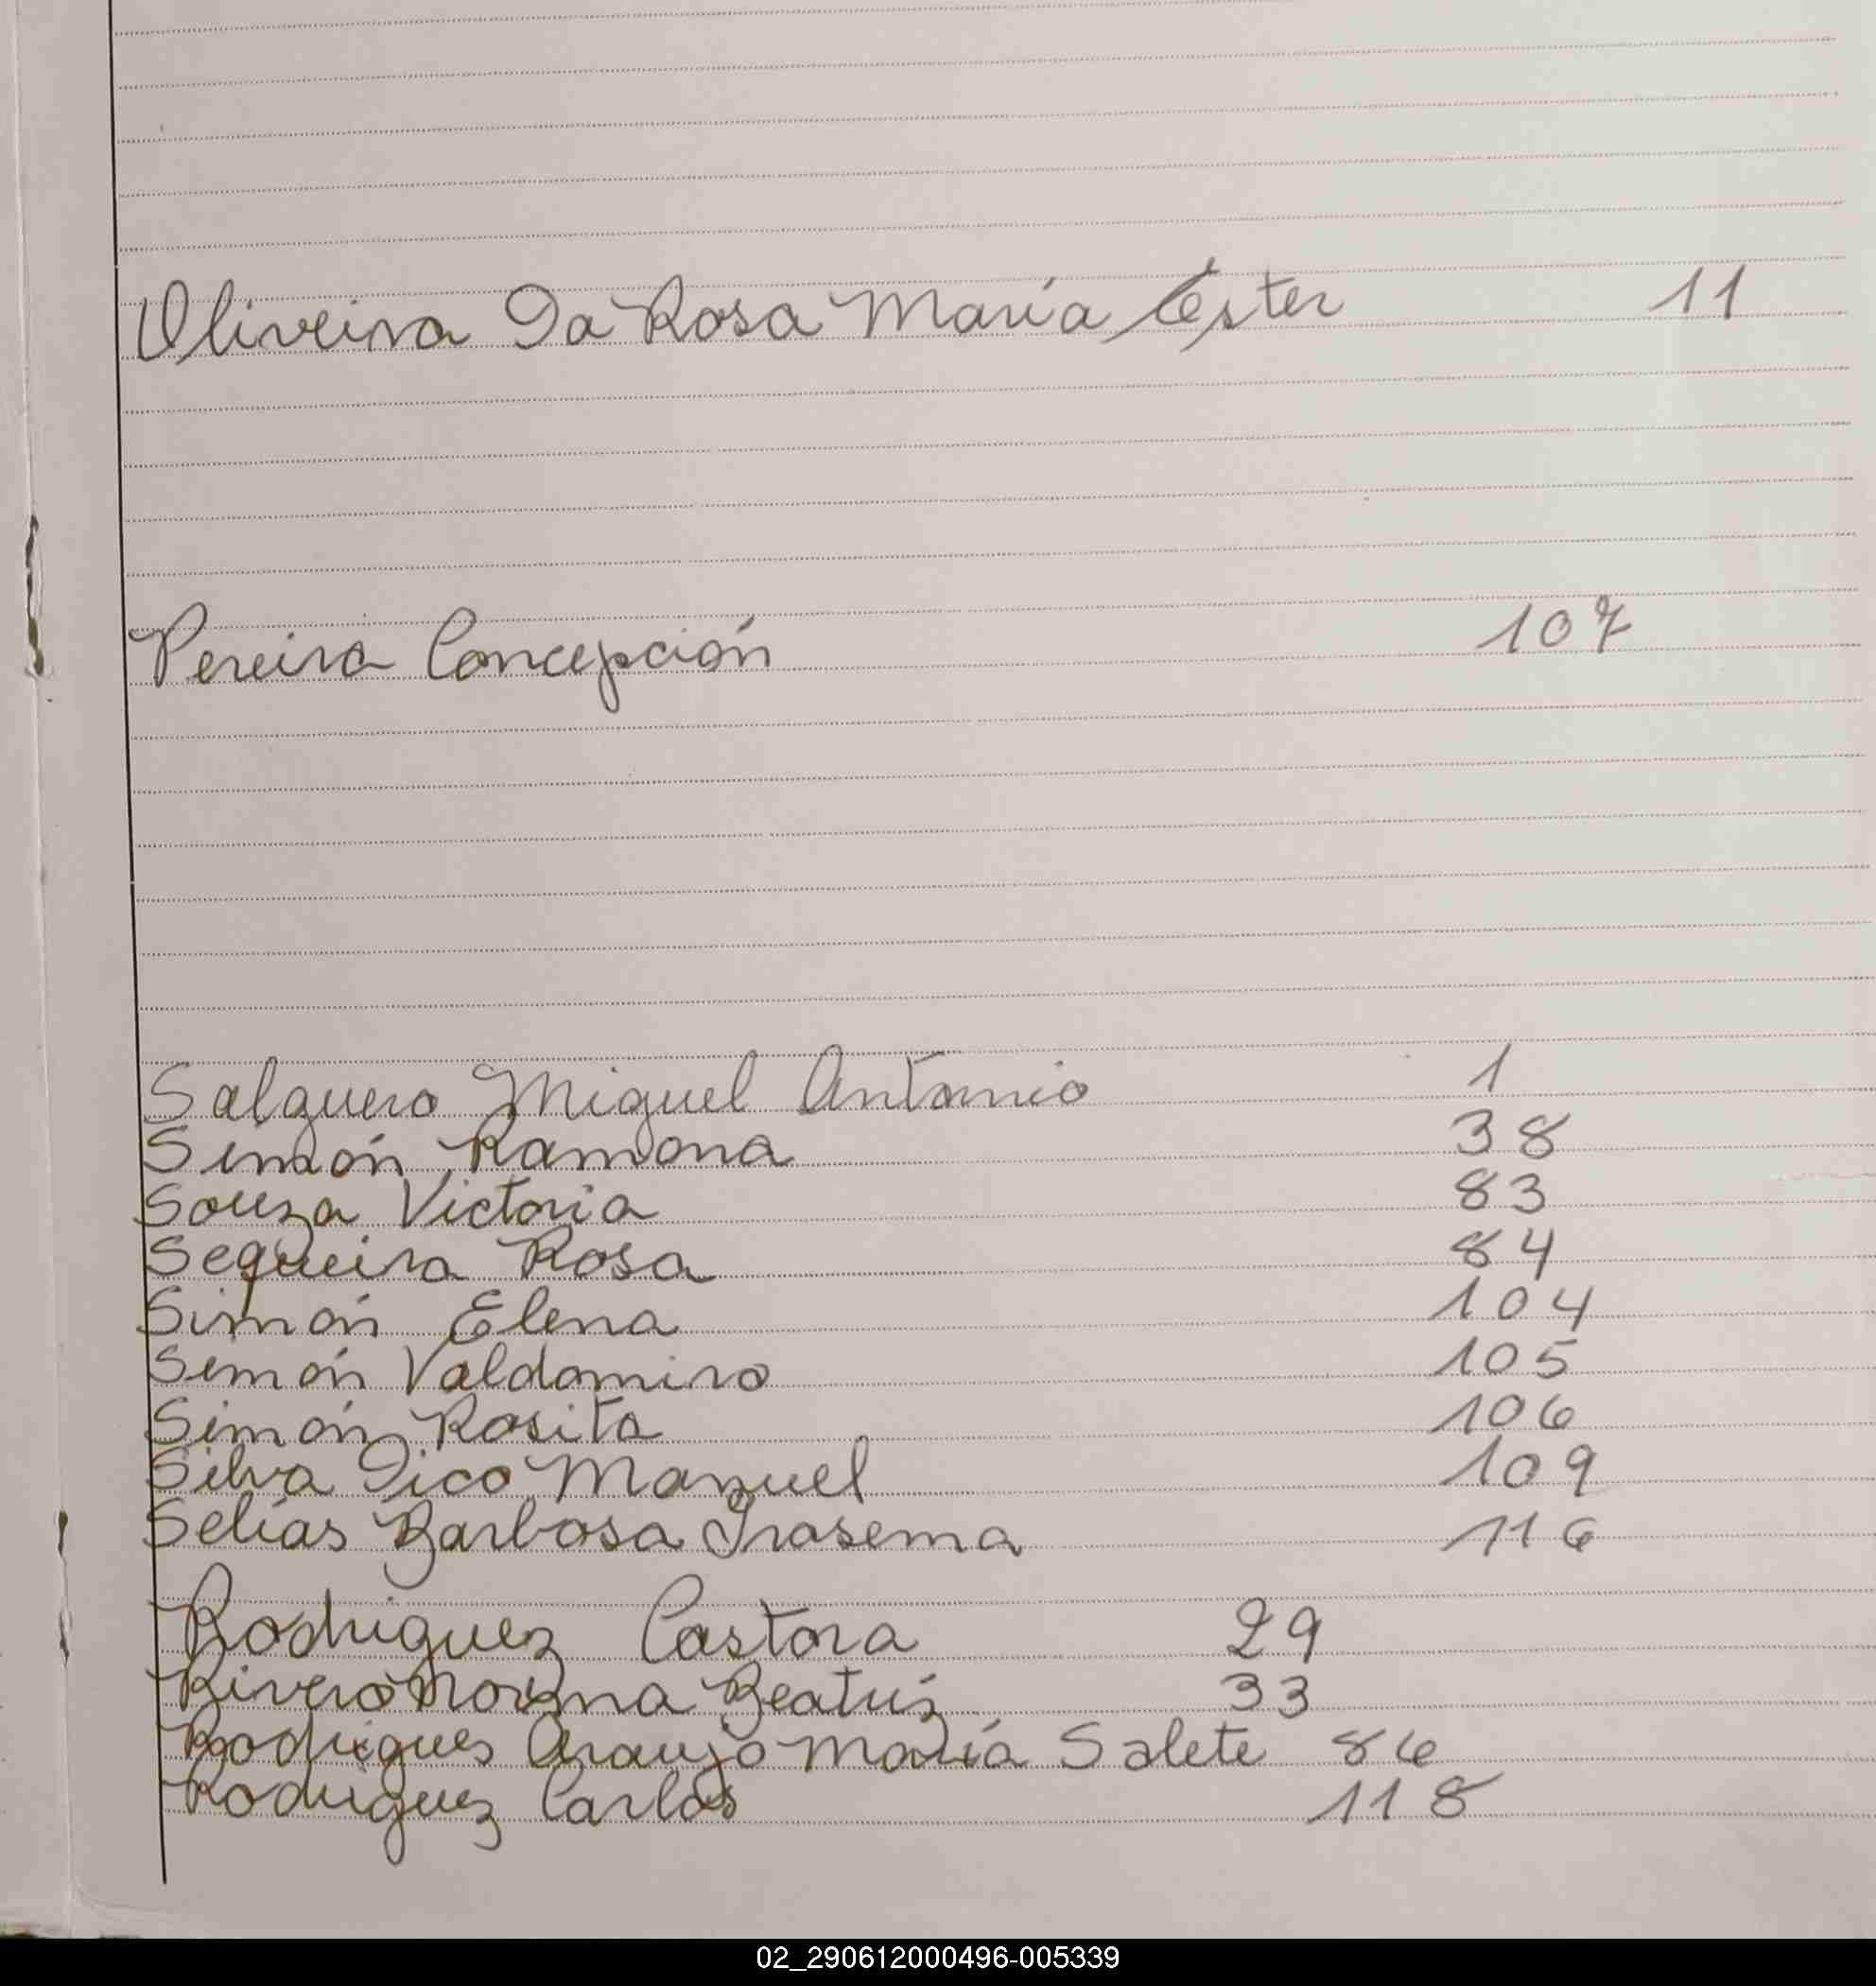 Oliveira Da Rosa María Ester 11
Pereira Concepción 107
Salguero Miguel Antonio 1
Simón Ramona 38
Souza Victoria 83
Sequeira Rosa 84
Simón Elena 104
Simón Valdomiro 105
Simón Rosita 106
Silva Dico Manuel 109
Selias Barbosa Irasema 116
Rodriguez Castora 29
Rivero Norma Beatriz 33
Rodrigues Araujo María Salete 86
Rodriguez Carlos 118
02_290612000496-005339